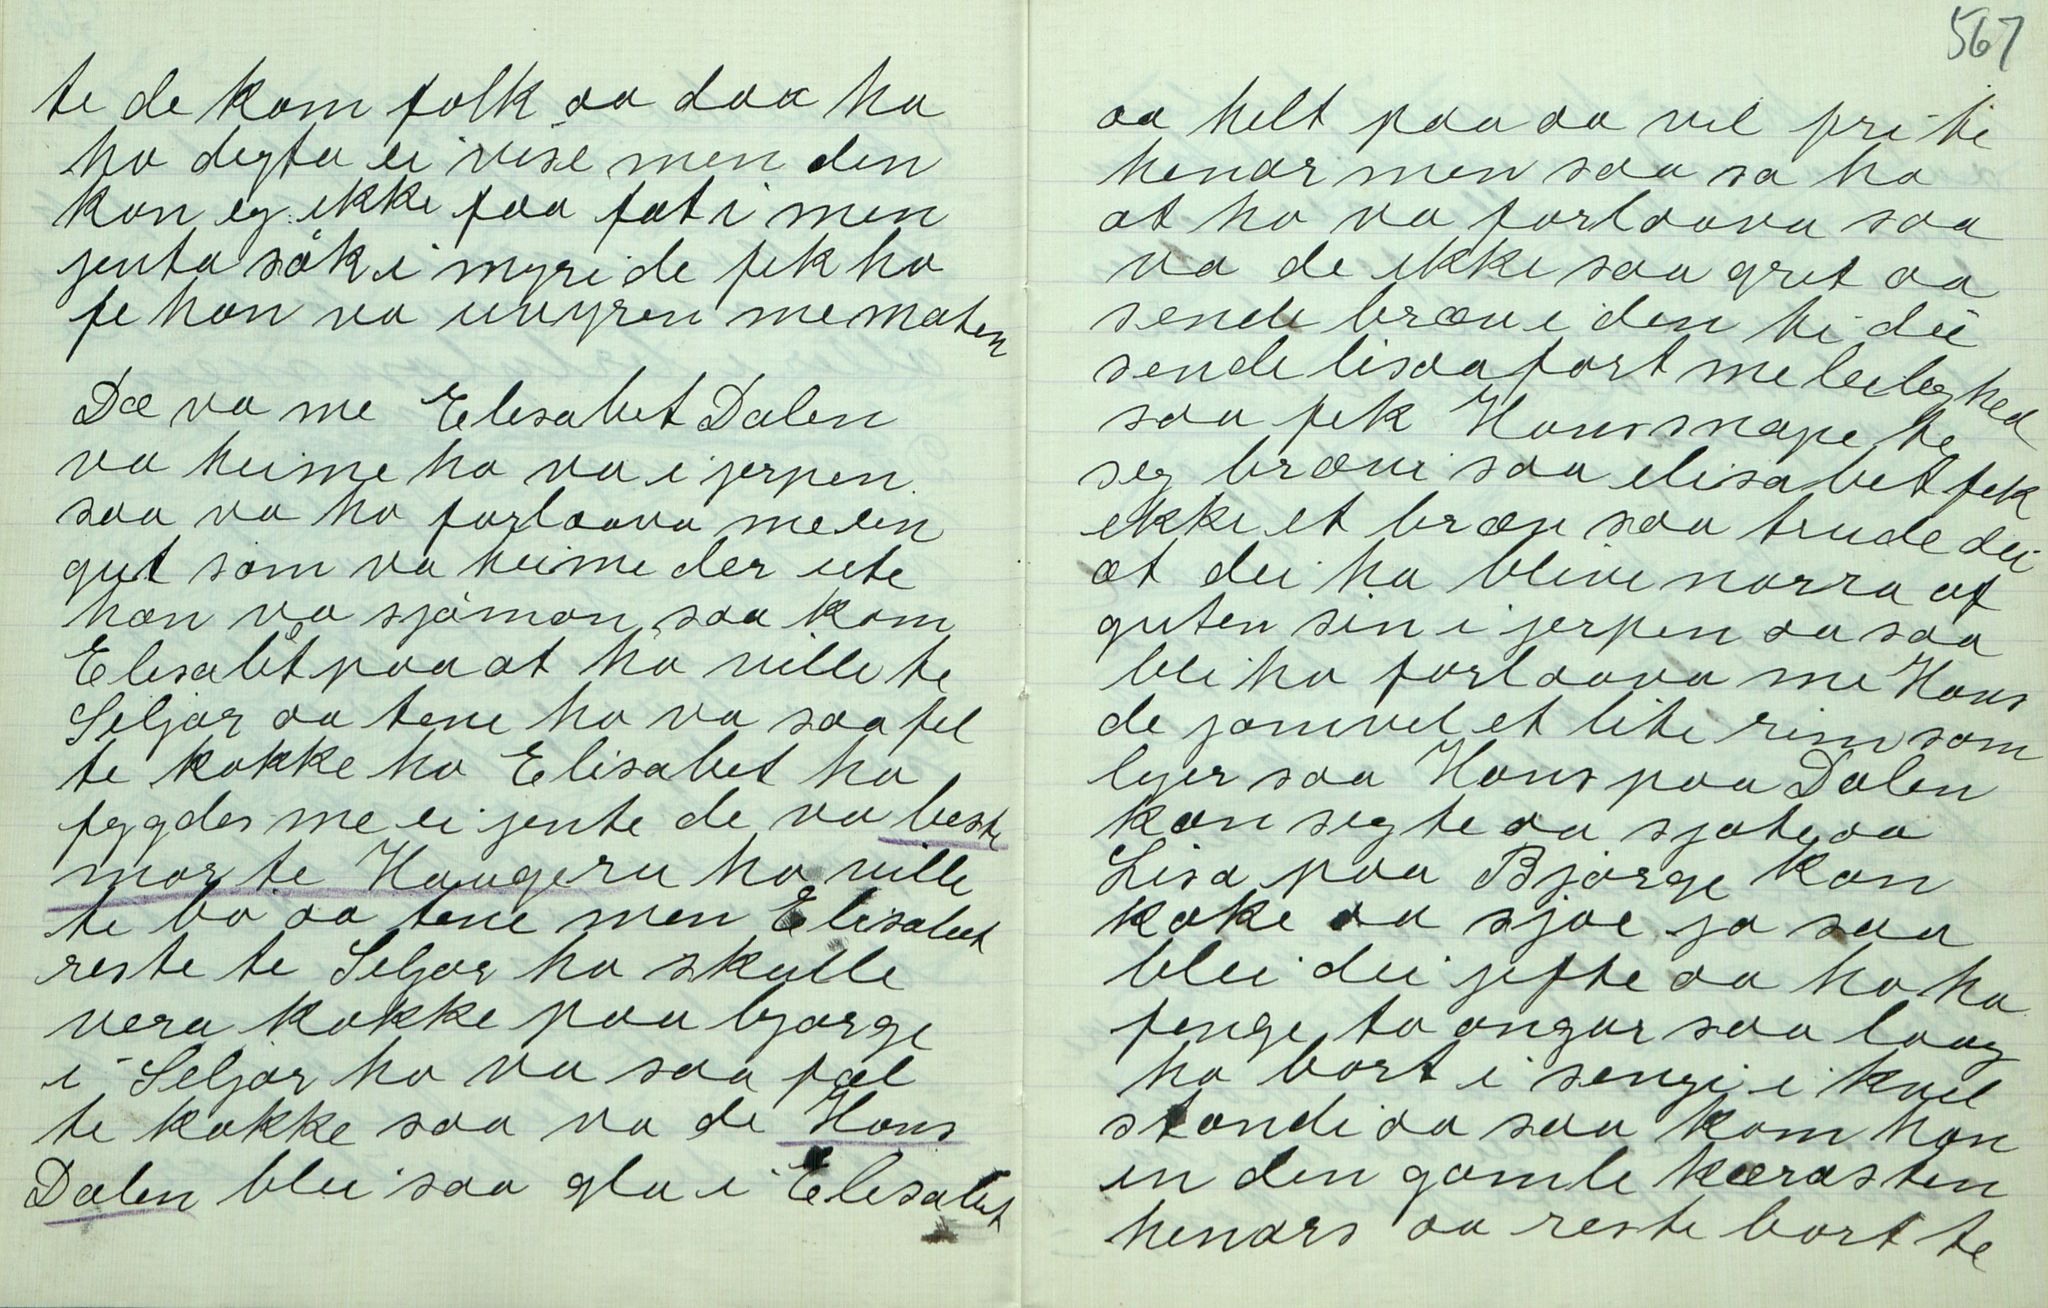 te de kom folk aa daa ha
ho degta ei vise men den
kan eg ikke faa fat i men
jenta søk i myri de fek ho
fe han va uvyren me maten
Dæ va me Elesabet Dalen
va heime ho va i jerpen
saa va ho forlaava me en
gut som va heime der ute
han va sjøman saa kom
Elesabet paa at ho ville te
Seljor aa tene ho va saa fel
te kokke ho Elisabet ho
fygdes me ei jente de va beste
mor te Haugeru ho ville
te bø aa tene men Elisabet
reste te Seljor ho skulle
vera kokke paa bjørge
i Seljor ho va saa fæl
te kokke saa va de Hans
Dalen blei saa gla i Elesabet
567
aa helt paa aa vil fri te
henar men saa sa ho
at ho va forlaava saa
va de ikke saa gret aa
sende bræv i den ti dei
sende lisaa fort me leileghed
saa fek Hans snape te
seg brævi saa elisabet fek
ikke et bræv saa trude dei
at dei ha blive narra af
guten sin i jerpen aa saa
blei ho forlaava me Hans
de jamvel et lite rim som
lyer saa Hans paa Dalen
kan segte aa sjote aa
Lisa paa Bjørge kan
koke aa sjoe ja saa
blei dei jifte aa ho ha
fenge to ongar saa laag
ho bort i sengi i kvel
stondi aa saa kom han
in den gamle kærasten
henars aa reste bort te